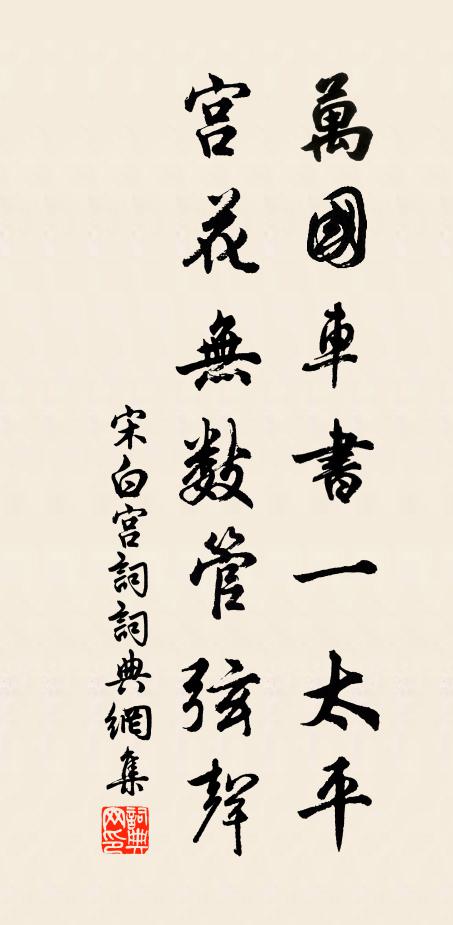 萬國車書一太平
宮花無數管弦聲
宋白宮詞詞典網集
詞典網印